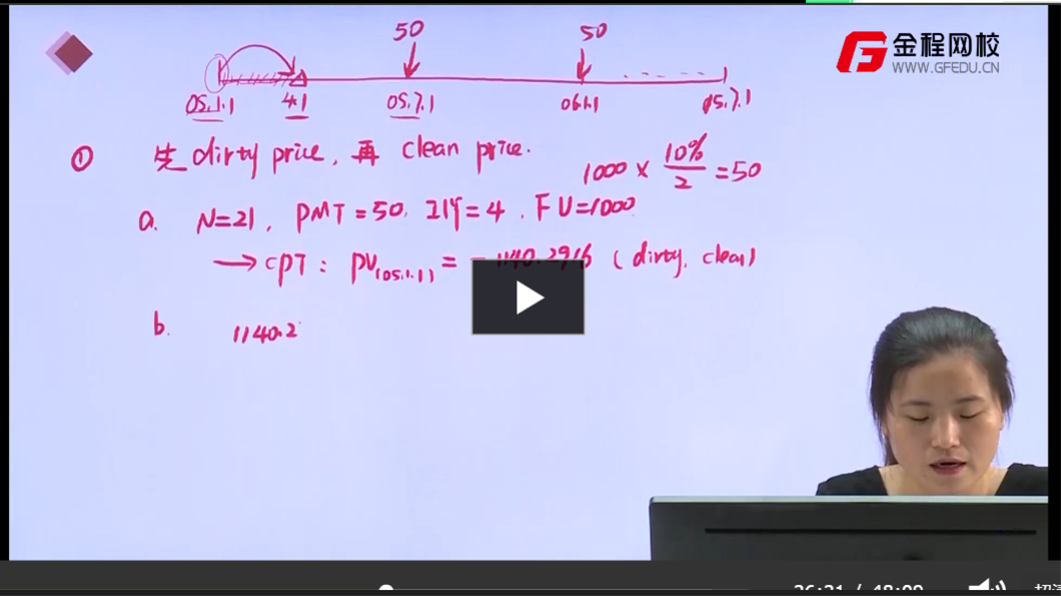 50 50
金程网校
WWW.GFEDU.CN
05.1.1 4.1 05.7.1 06.1.1 15.7.1
① 先 dirty price, 再 clean price.
1000 × 10%/2 = 50
a. N=21, PMT=50, I/Y=4, FV=1000
→ CPT: PV(05.1.1) = -1140.2916 (dirty, clean)
b. 1140.2